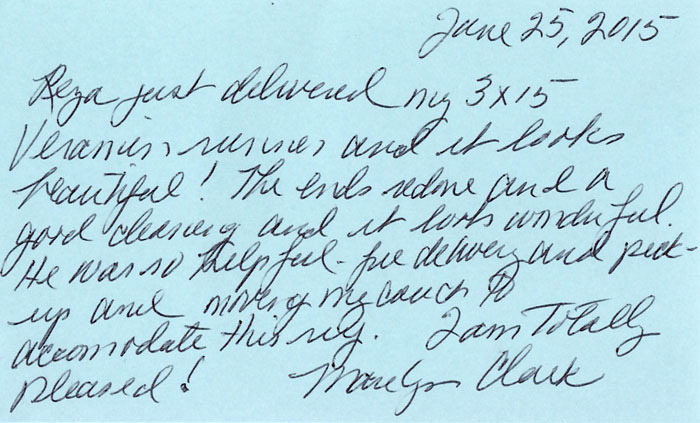 June 25, 2015
Reza just delivered my 3x15
runner and it looks
beautiful! The ends redone and a
good cleaning and it looks wonderful.
He was so helpful - free delivery and pick-
up and moving my couch to
accomodate this rug. I am Totally
pleased! Marilyn Clark